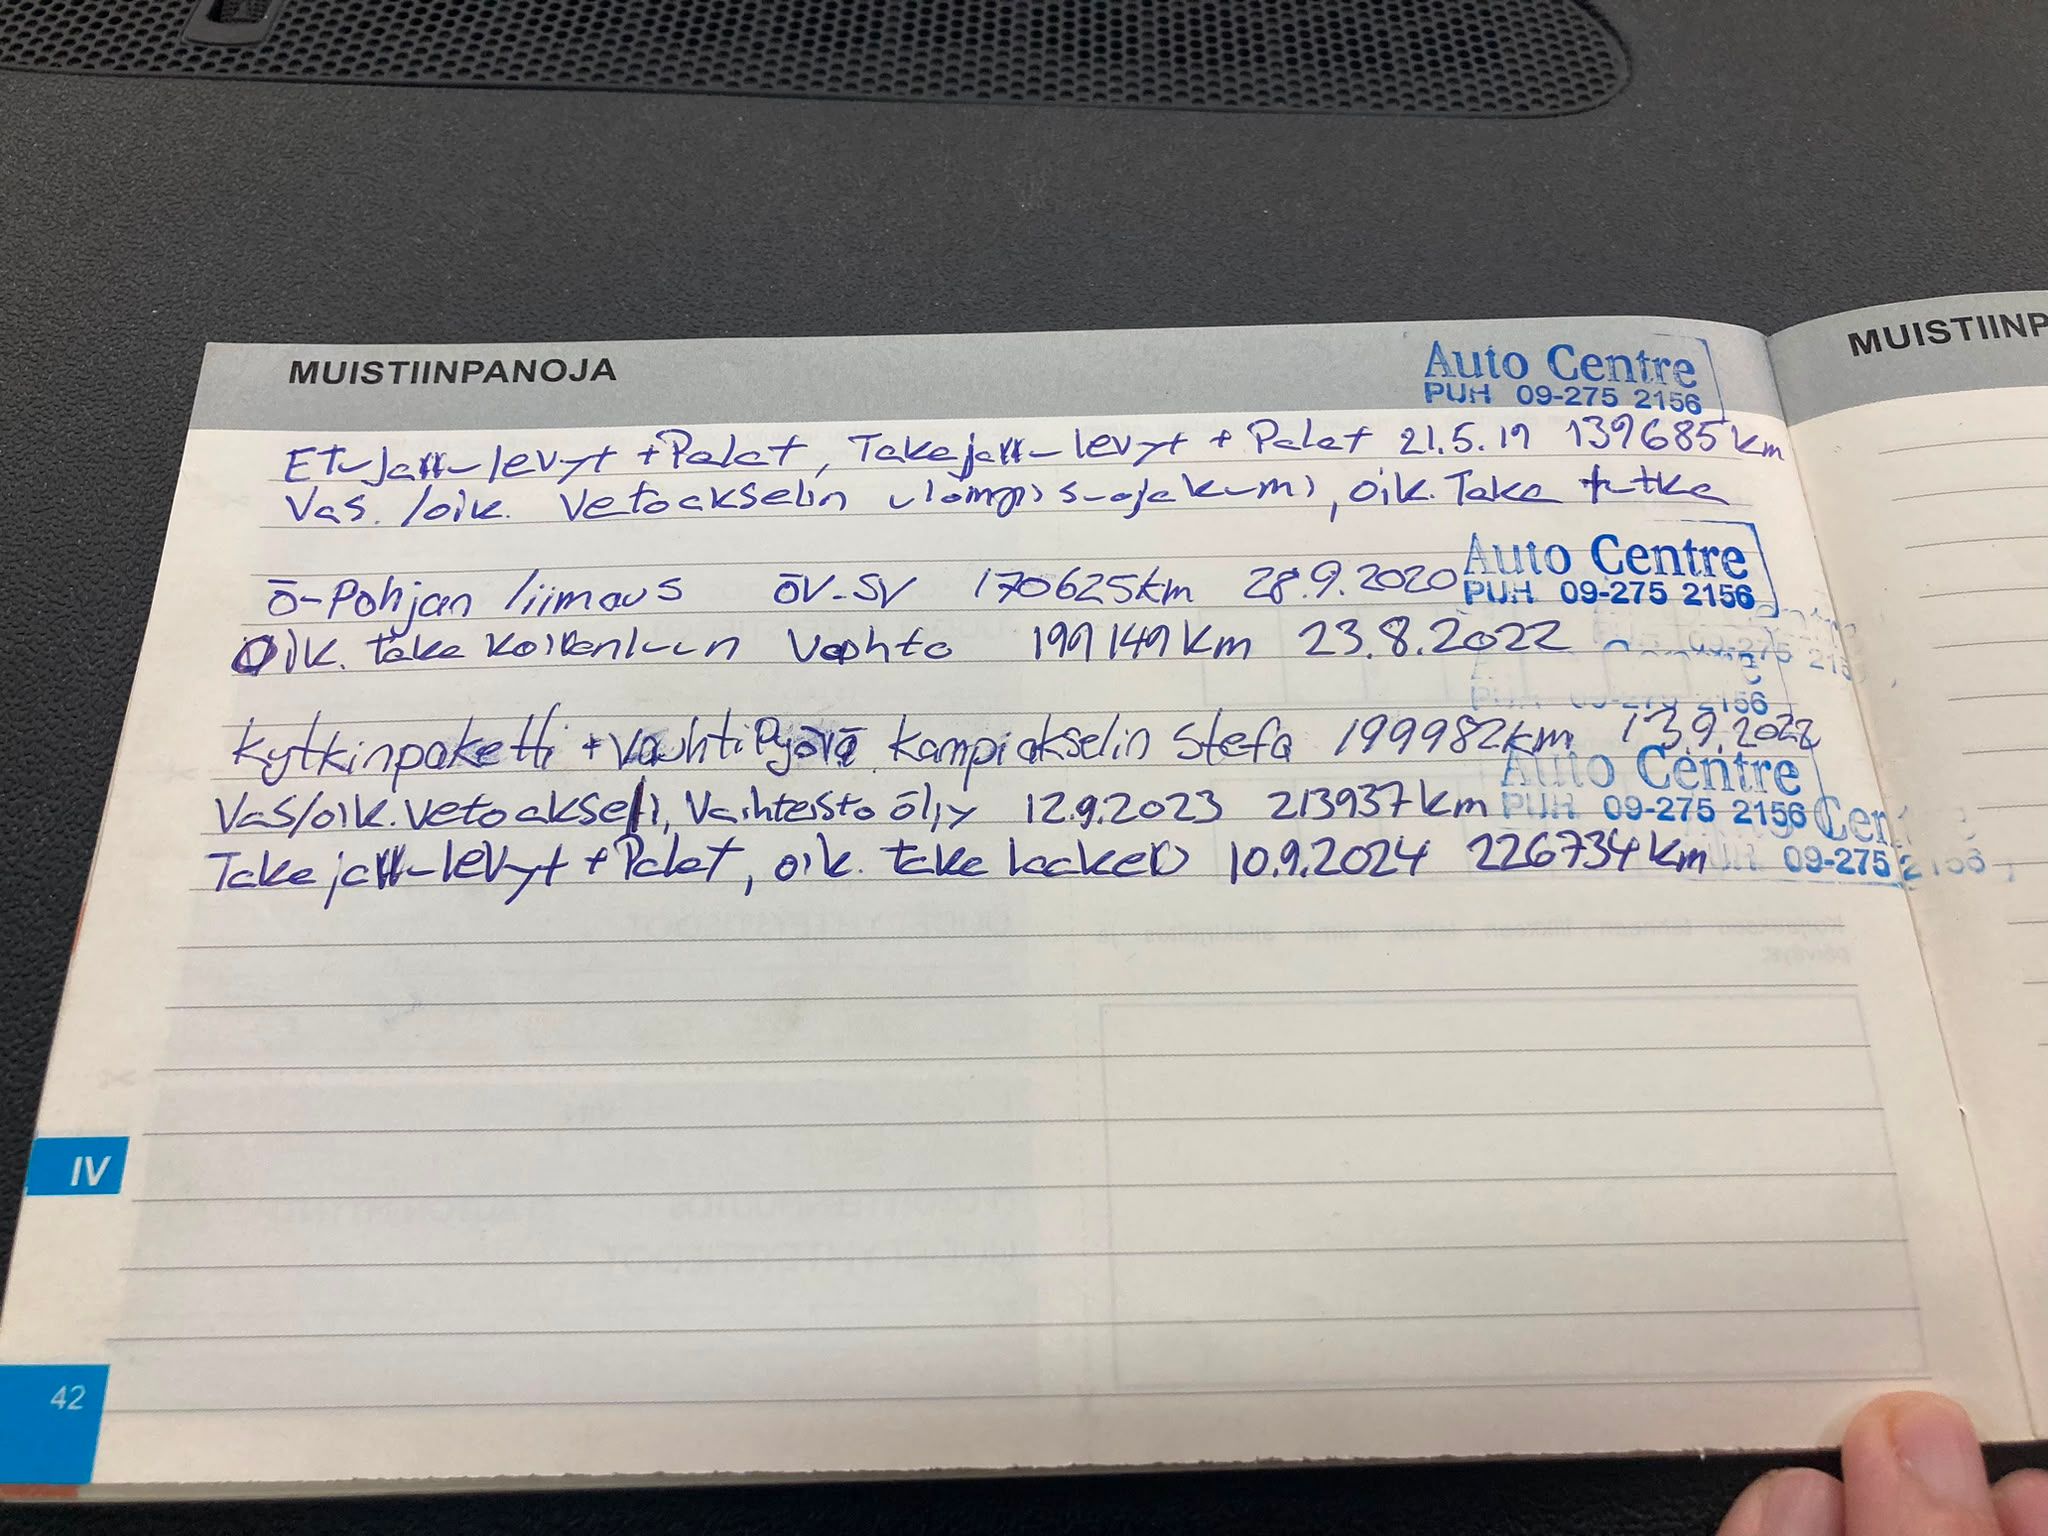 MUISTIINPANOJA
MUISTIINP
Auto Centre
PUH 09-275 2156
Etujarrulevyt + Palat, Takajarrulevyt + Palat 21.5.19 139685km
Vas./oik. Vetoakselin ulompi suojakumi, oik. Taka tutka
Auto Centre
PUH 09-275 2156
Ö-Pohjan liimaus ÖV-SV 170625km 28.9.2020
Oik. taka koiranluun Vaihto 199149km 23.8.2022
09-275 215
PUH 09-275 2156
Kytkinpaketti + Vauhtipyörä, Kampiakselin Stefa 199982km 13.9.2022
Auto Centre
PUH 09-275 2156
Vas/oik. Vetoakseli, Vaihteisto öljy 12.9.2023 213937km
Cen
09-275 2156
Takajarrulevyt + Palat, oik. taka laakeri 10.9.2024 226734km
IV
42